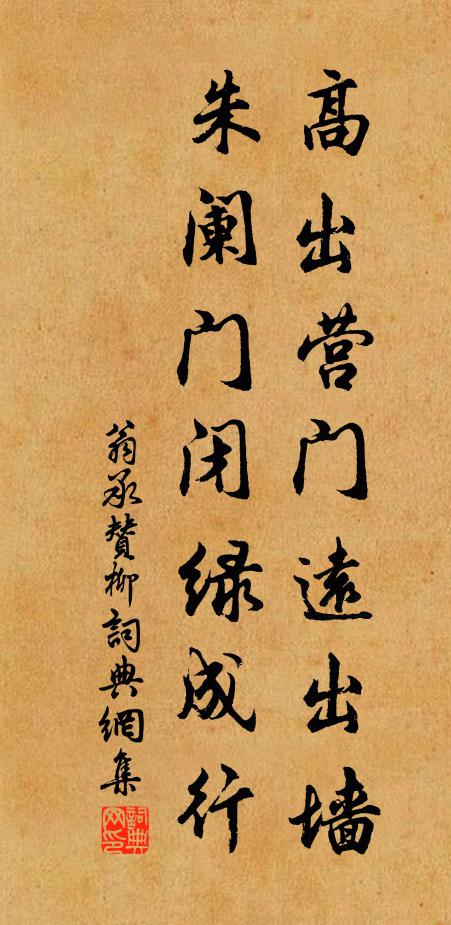 高出营门遠出墙
朱阑门闭绿成行
翁承贊柳詞典網集
詞典網印